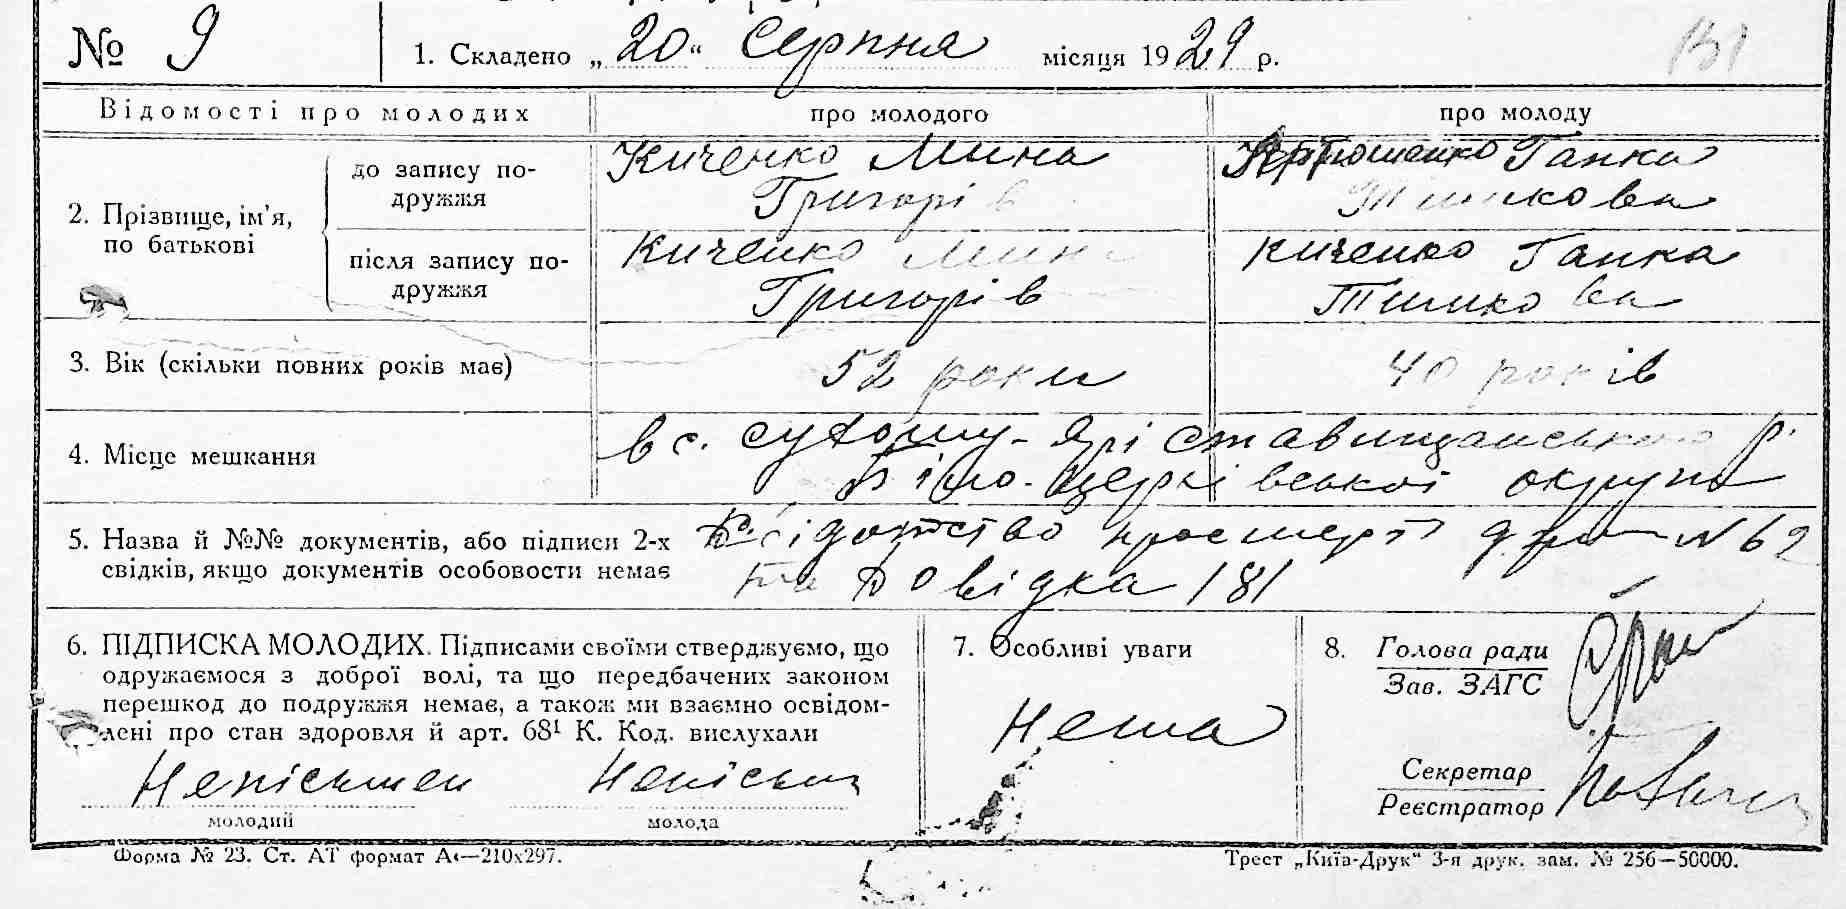 № 9 1. Складено „20“ Серпня місяця 1929 р. 131
Відомості про молодих про молодого про молоду
2. Прізвище, ім'я, по батькові
до запису подружжя
Киченко Мина
Григорів
Ганка
Тимкова
після запису подружжя
Киченко Мин
Григорів
Киченко Ганка
Тимкова
3. Вік (скільки повних років має) 52 роки 40 років
4. Місце мешкання в с. Сухому-Ярі Ставищанського р.
Біло-Церківської округи
5. Назва й №№ документів, або підписи 2-х
свідків, якщо документів особовости немає
N 62
та Довідка 181
6. ПІДПИСКА МОЛОДИХ. Підписами своїми стверджуємо, що
одружаємося з доброї волі, та що передбачених законом
перешкод до подружжя немає, а також ми взаємно освідом-
лені про стан здоровля й арт. 68¹ К. Код. вислухали
Непісьмен Непісьм
молодий молода
7. Особливі уваги
Нема
8. Голова ради
Зав. ЗАГС
Секретар
Реєстратор
Форма № 23. Ст. АТ формат А4—210x297. Трест „Київ-Друк“ 3-я друк. зам. № 256—50000.